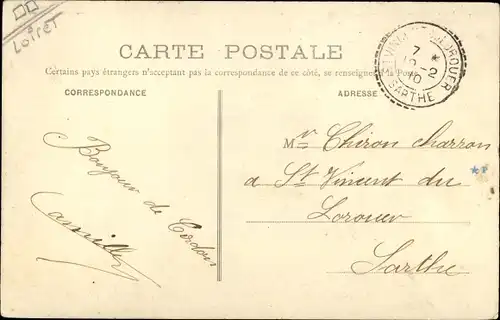 LOIRET
CARTE POSTALE
Certains pays étrangers n'acceptant pas la correspondance de ce côté, se renseigner à la Poste
CORRESPONDANCE
ADRESSE
ST VINCENT-DU-LOROUER
7
12
10
SARTHE
Bonjour de Cerdon
Camille
Mr Chiron charron
a St Vincent du
Lorouer
Sarthe